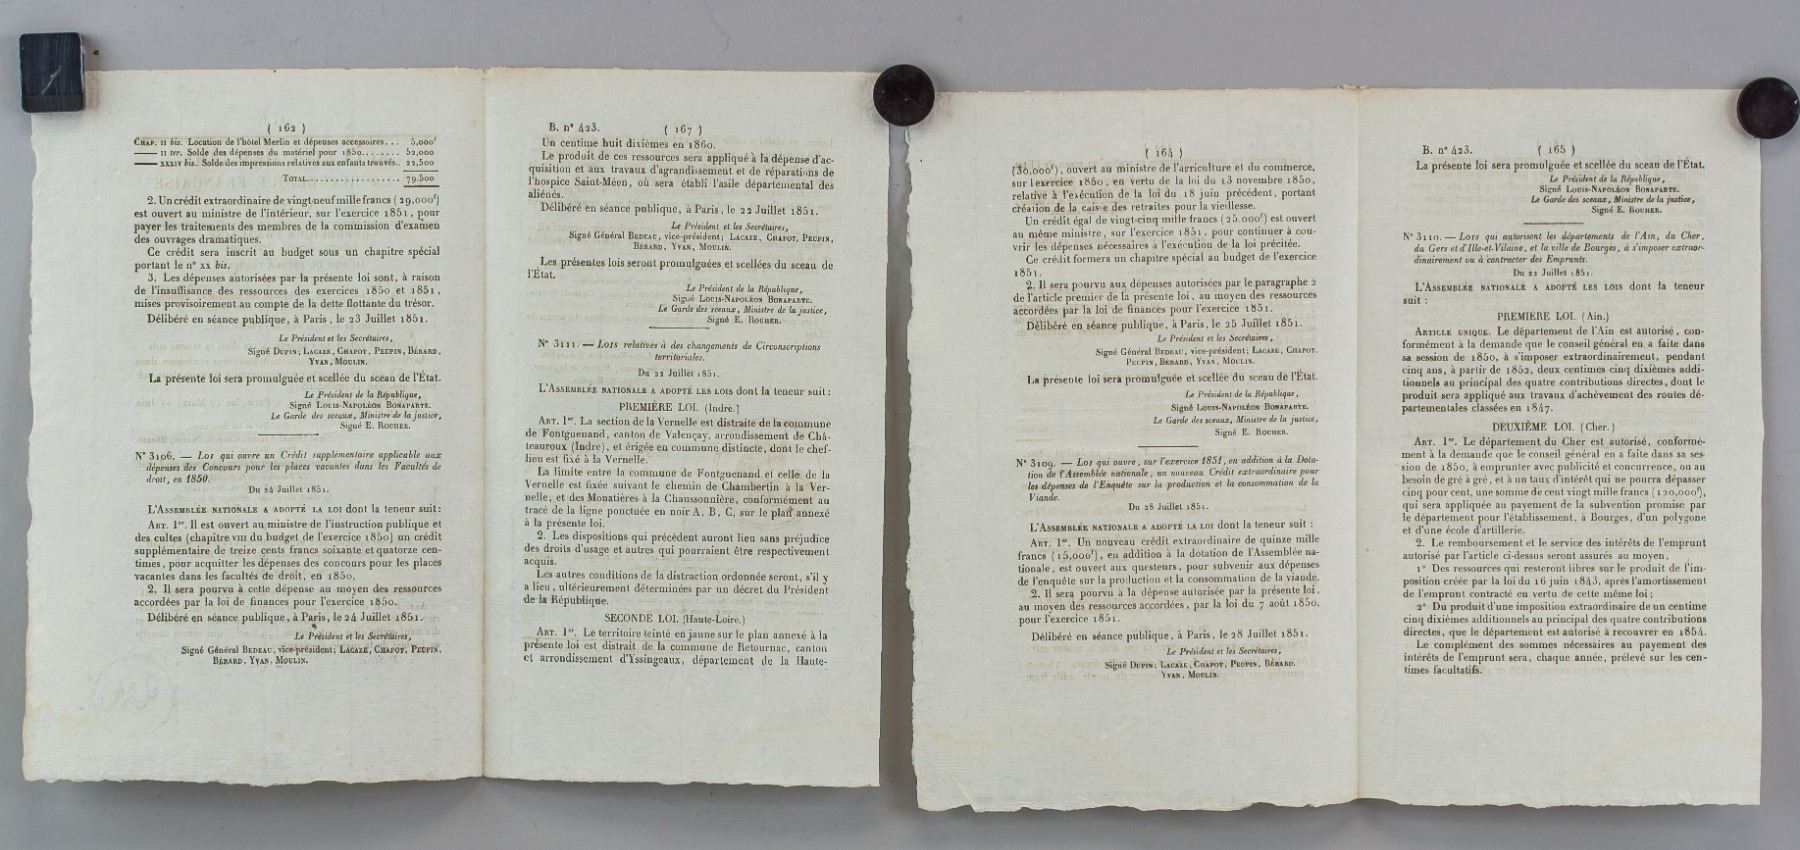 ( 162 )
CHAP. II bis. Location de l'hôtel Merlin et dépenses accessoires... 5,000f
—— II ter. Solde des dépenses du matériel pour 1850........ 52,000
—— XXXIV bis. Solde des impressions relatives aux enfants trouvés.. 22,500
TOTAL.................. 79,500
2. Un crédit extraordinaire de vingt-neuf mille francs (29,000f)
est ouvert au ministre de l'intérieur, sur l'exercice 1851, pour
payer les traitements des membres de la commission d'examen
des ouvrages dramatiques.
Ce crédit sera inscrit au budget sous un chapitre spécial
portant le n° XX bis.
3. Les dépenses autorisées par la présente loi sont, à raison
de l'insuffisance des ressources des exercices 1850 et 1851,
mises provisoirement au compte de la dette flottante du trésor.
Délibéré en séance publique, à Paris, le 23 Juillet 1851.
Le Président et les Secrétaires,
Signé DUPIN; LACAZE, CHAPOT, PEUPIN, BÉRARD,
YVAN, MOULIN.
La présente loi sera promulguée et scellée du sceau de l'État.
Le Président de la République,
Signé LOUIS-NAPOLÉON BONAPARTE.
Le Garde des sceaux, Ministre de la justice,
Signé E. ROUHER.
N° 3106. — LOI qui ouvre un Crédit supplémentaire applicable aux
dépenses des Concours pour les places vacantes dans les Facultés de
droit, en 1850.
Du 24 Juillet 1851.
L'ASSEMBLÉE NATIONALE A ADOPTÉ LA LOI dont la teneur suit:
ART. 1er. Il est ouvert au ministre de l'instruction publique et
des cultes (chapitre VIII du budget de l'exercice 1850) un crédit
supplémentaire de treize cents francs soixante et quatorze cen-
times, pour acquitter les dépenses des concours pour les places
vacantes dans les facultés de droit, en 1850.
2. Il sera pourvu à cette dépense au moyen des ressources
accordées par la loi de finances pour l'exercice 1850.
Délibéré en séance publique, à Paris, le 24 Juillet 1851.
Le Président et les Secrétaires,
Signé Général BEDEAU, vice-président; LACAZE, CHAPOT, PEUPIN,
BÉRARD, YVAN, MOULIN.
B. n° 423. ( 167 )
Un centime huit dixièmes en 1860.
Le produit de ces ressources sera appliqué à la dépense d'ac-
quisition et aux travaux d'agrandissement et de réparations de
l'hospice Saint-Méen, où sera établi l'asile départemental des
aliénés.
Délibéré en séance publique, à Paris, le 22 Juillet 1851.
Le Président et les Secrétaires,
Signé Général BEDEAU, vice-président; LACAZE, CHAPOT, PEUPIN,
BÉRARD, YVAN, MOULIN.
Les présentes lois seront promulguées et scellées du sceau de
l'État.
Le Président de la République,
Signé LOUIS-NAPOLÉON BONAPARTE.
Le Garde des sceaux, Ministre de la justice,
Signé E. ROUHER.
N° 3111. — LOIS relatives à des changements de Circonscriptions
territoriales.
Du 22 Juillet 1851.
L'ASSEMBLÉE NATIONALE A ADOPTÉ LES LOIS dont la teneur suit:
PREMIÈRE LOI. (Indre.)
ART. 1er. La section de la Vernelle est distraite de la commune
de Fontguenand, canton de Valençay, arrondissement de Châ-
teauroux (Indre), et érigée en commune distincte, dont le chef-
lieu est fixé à la Vernelle.
La limite entre la commune de Fontguenand et celle de la
Vernelle est fixée suivant le chemin de Chambertin à la Ver-
nelle, et des Monatières à la Chaussonnière, conformément au
tracé de la ligne ponctuée en noir A, B, C, sur le plan annexé
à la présente loi.
2. Les dispositions qui précédent auront lieu sans préjudice
des droits d'usage et autres qui pourraient être respectivement
acquis.
Les autres conditions de la distraction ordonnée seront, s'il y
a lieu, ultérieurement déterminées par un décret du Président
de la République.
SECONDE LOI. (Haute-Loire.)
ART. 1er. Le territoire teinté en jaune sur le plan annexé à la
présente loi est distrait de la commune de Retournac, canton
et arrondissement d'Yssingeaux, département de la Haute-
( 164 )
(30,000f), ouvert au ministre de l'agriculture et du commerce,
sur l'exercice 1850, en vertu de la loi du 13 novembre 1850,
relative à l'exécution de la loi du 18 juin précédent, portant
création de la caisse des retraites pour la vieillesse.
Un crédit égal de vingt-cinq mille francs (25,000f) est ouvert
au même ministre, sur l'exercice 1851, pour continuer à cou-
vrir les dépenses nécessaires à l'exécution de la loi précitée.
Ce crédit formera un chapitre spécial au budget de l'exercice
1851.
2. Il sera pourvu aux dépenses autorisées par le paragraphe 2
de l'article premier de la présente loi, au moyen des ressources
accordées par la loi de finances pour l'exercice 1851.
Délibéré en séance publique, à Paris, le 25 Juillet 1851.
Le Président et les Secrétaires,
Signé Général BEDEAU, vice-président; LACAZE, CHAPOT,
PEUPIN, BÉRARD, YVAN, MOULIN.
La présente loi sera promulguée et scellée du sceau de l'État.
Le Président de la République,
Signé LOUIS-NAPOLÉON BONAPARTE.
Le Garde des sceaux, Ministre de la justice,
Signé E. ROUHER.
N° 3109. — LOI qui ouvre, sur l'exercice 1851, en addition à la Dota-
tion de l'Assemblée nationale, un nouveau Crédit extraordinaire pour
les dépenses de l'Enquête sur la production et la consommation de la
Viande.
Du 28 Juillet 1851.
L'ASSEMBLÉE NATIONALE A ADOPTÉ LA LOI dont la teneur suit :
ART. 1er. Un nouveau crédit extraordinaire de quinze mille
francs (15,000f), en addition à la dotation de l'Assemblée na-
tionale, est ouvert aux questeurs, pour subvenir aux dépenses
de l'enquête sur la production et la consommation de la viande.
2. Il sera pourvu à la dépense autorisée par la présente loi,
au moyen des ressources accordées, par la loi du 7 août 1850,
pour l'exercice 1851.
Délibéré en séance publique, à Paris, le 28 Juillet 1851.
Le Président et les Secrétaires,
Signé DUPIN; LACAZE, CHAPOT, PEUPIN, BÉRARD,
YVAN, MOULIN.
B. n° 423. ( 165 )
La présente loi sera promulguée et scellée du sceau de l'État.
Le Président de la République,
Signé LOUIS-NAPOLÉON BONAPARTE.
Le Garde des sceaux, Ministre de la justice,
Signé E. ROUHER.
N° 3110. — LOIS qui autorisent les départements de l'Ain, du Cher,
du Gers et d'Ille-et-Vilaine, et la ville de Bourges, à s'imposer extraor-
dinairement ou à contracter des Emprunts.
Du 22 Juillet 1851.
L'ASSEMBLÉE NATIONALE A ADOPTÉ LES LOIS dont la teneur
suit :
PREMIÈRE LOI. (Ain.)
ARTICLE UNIQUE. Le département de l'Ain est autorisé, con-
formément à la demande que le conseil général en a faite dans
sa session de 1850, à s'imposer extraordinairement, pendant
cinq ans, à partir de 1852, deux centimes cinq dixièmes addi-
tionnels au principal des quatre contributions directes, dont le
produit sera appliqué aux travaux d'achèvement des routes dé-
partementales classées en 1847.
DEUXIÈME LOI. (Cher.)
ART. 1er. Le département du Cher est autorisé, conformé-
ment à la demande que le conseil général en a faite dans sa ses-
sion de 1850, à emprunter avec publicité et concurrence, ou au
besoin de gré à gré, et à un taux d'intérêt qui ne pourra dépasser
cinq pour cent, une somme de cent vingt mille francs (120,000f),
qui sera appliquée au payement de la subvention promise par
le département pour l'établissement, à Bourges, d'un polygone
et d'une école d'artillerie.
2. Le remboursement et le service des intérêts de l'emprunt
autorisé par l'article ci-dessus seront assurés au moyen,
1° Des ressources qui resteront libres sur le produit de l'im-
position créée par la loi du 16 juin 1843, après l'amortissement
de l'emprunt contracté en vertu de cette même loi;
2° Du produit d'une imposition extraordinaire de un centime
cinq dixièmes additionnels au principal des quatre contributions
directes, que le département est autorisé à recouvrer en 1854.
Le complément des sommes nécessaires au payement des
intérêts de l'emprunt sera, chaque année, prélevé sur les cen-
times facultatifs.